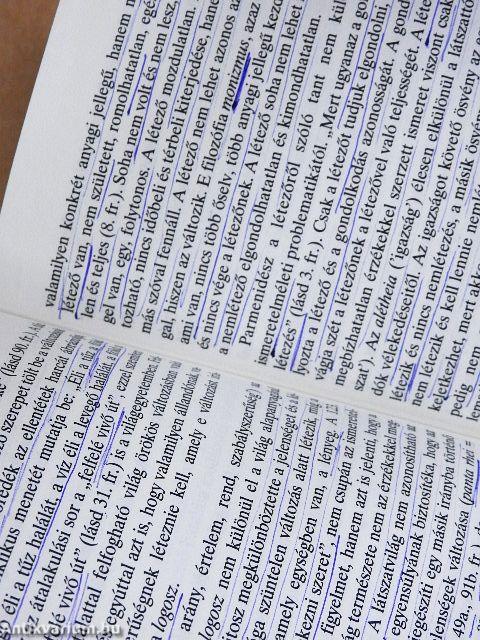 ő szerepet tölt be a változás
(lásd 90. fr.). A tű
edék az ellentétek harcát ábrázol
kus menetét mutatja be: „Éli a tűz a
éli a tűz halálát, a víz éli a levegő halálát, a föld
átalakulási sor a „felfelé vivő út”, ezzel szembe
vivő út” (lásd 31. fr.) is a világegyetemben
uttal felfogható világ örökös változásba
gyúttal azt is, hogy valamilyen állandónak
őségnek léteznie kell, amely e változást
logosz.
arány, értelem, rend, szabályszerűség)
logosz nem különül el a világ alapanyagá
tosz megkülönböztette a jelenséget és a lé
ga szüntelen változás alatt létezik, míg
amely egységben van, a lényeg. A
kezni szeret”, nem csupán az ismeretel
figyelmet, hanem azt is jelenti, hogy a
g természete nem az érzékekkel meg
A látszatvilág nem azonosítható
gyensúlyának biztosítéka, hogy
egészíti egy másik irányba történő
enségek változása (panta rhei =
49a., 91b. fr.)
valamilyen konkrét anyagi jellegű, hanem m
létező van, nem született, romolhatatlan, egé
len és teljes (8. fr.). Soha nem volt és nem lesz,
gel van, egy, folytonos. A létező mozdulatlan
tozható, nincs időbeli és térbeli kiterjedése, hane
más szóval fennáll. A létező nem lehet azonos az
ga, hiszen az változik. E filozófia monizmus, azaz
ami van, nincs több őselv, több anyagi jellegű kezd
és nincs vége a létezőnek. A létező soha nem lehet
a nemlétező elgondolhatatlan és kimondhatatlan.
Parmenidész a létezőről szóló tant nem kül
ismeretelméleti problematikától. „Mert ugyanaz a gon
létezés” (lásd 3. fr.). Csak a létezőt tudjuk elgondolni,
lyozta a létező és a gondolkodás azonosságát. A gond
vágja szét a létezőnek a létezővel való teljességét. A léte
megbízhatatlan érzékekkel szerzett ismeret viszont csak
sza’). Az alétheia (’igazság’) élesen elkülönül a látszattó
dók vélekedéseitől. Az igazságot követő ösvény az
létezik és nincs nemlétezés, a másik ösvé
nem létezik és kell lennie nemlé
kegedhet, mert a
pedig nem
Antikvarium.hu